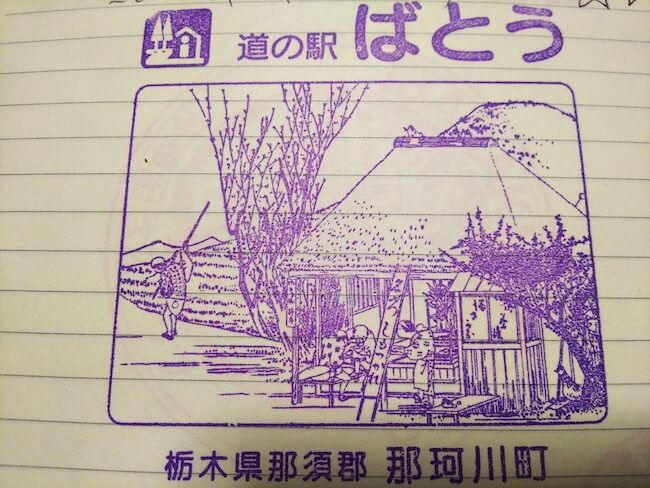 道の駅 ばとう
栃木県那須郡 那珂川町